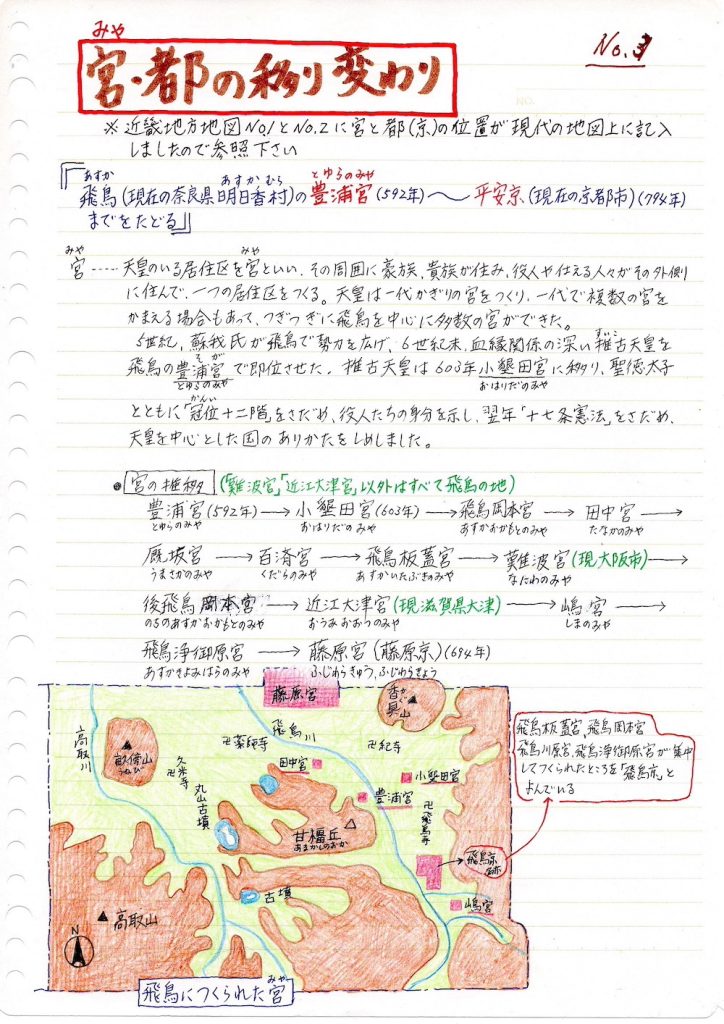 みや
No.3
宮・都の移り変わり
※近畿地方地図No.1とNo.2に宮と都(京)の位置が現代の地図上に記入
しましたので参照下さい
あすか
あすかむら
とゆらのみや
「飛鳥(現在の奈良県明日香村)の豊浦宮(592年)〜平安京(現在の京都市)(794年)
までをたどる」
みや
みや
宮‥‥‥天皇のいる居住区を宮といい、その周囲に豪族、貴族が住み、役人や仕える人々がその外側
に住んで、一つの居住区をつくる。天皇は一代かぎりの宮をつくり、一代で複数の宮を
かまえる場合もあって、つぎつぎに飛鳥を中心に多数の宮ができた。
すいこ
5世紀、蘇我氏が飛鳥で勢力を広げ、6世紀末、血縁関係の深い推古天皇を
そが
飛鳥の豊浦宮で即位させた。推古天皇は603年小墾田宮に移り、聖徳太子
とゆらのみや
おはりだのみや
かんい
とともに「冠位十二階」をさだめ、役人たちの身分を示し、翌年「十七条憲法」をさだめ、
天皇を中心とした国のありかたをしめしました。
●宮の推移(「難波宮」「近江大津宮」以外はすべて飛鳥の地)
豊浦宮(592年)→小墾田宮(603年)→飛鳥岡本宮→田中宮→
とゆらのみや おはりだのみや あすかおかもとのみや たなかのみや
厩坂宮→百済宮→飛鳥板蓋宮→難波宮(現大阪市)→
うまさかのみや くだらのみや あすかいたぶきのみや なにわのみや
後飛鳥岡本宮→近江大津宮(現滋賀県大津)→嶋宮→
のちのあすかおかもとのみや おうみおおつのみや しまのみや
飛鳥浄御原宮→藤原宮(藤原京)(694年)
あすかきよみはらのみや ふじわらきゅう、ふじわらきょう
藤原宮
香具山
かぐ
高取川
畝傍山
うねび
久米寺
卍
卍薬師寺
飛鳥川
卍紀寺
田中宮
小墾田宮
丸山古墳
豊浦宮
卍飛鳥寺
甘樫丘
あまかしのおか
飛鳥京跡
古墳
嶋宮
高取山
N
飛鳥板蓋宮、飛鳥岡本宮
飛鳥川原宮、飛鳥浄御原宮が集中
してつくられたところを「飛鳥京」と
よんでいる
みや
飛鳥につくられた宮